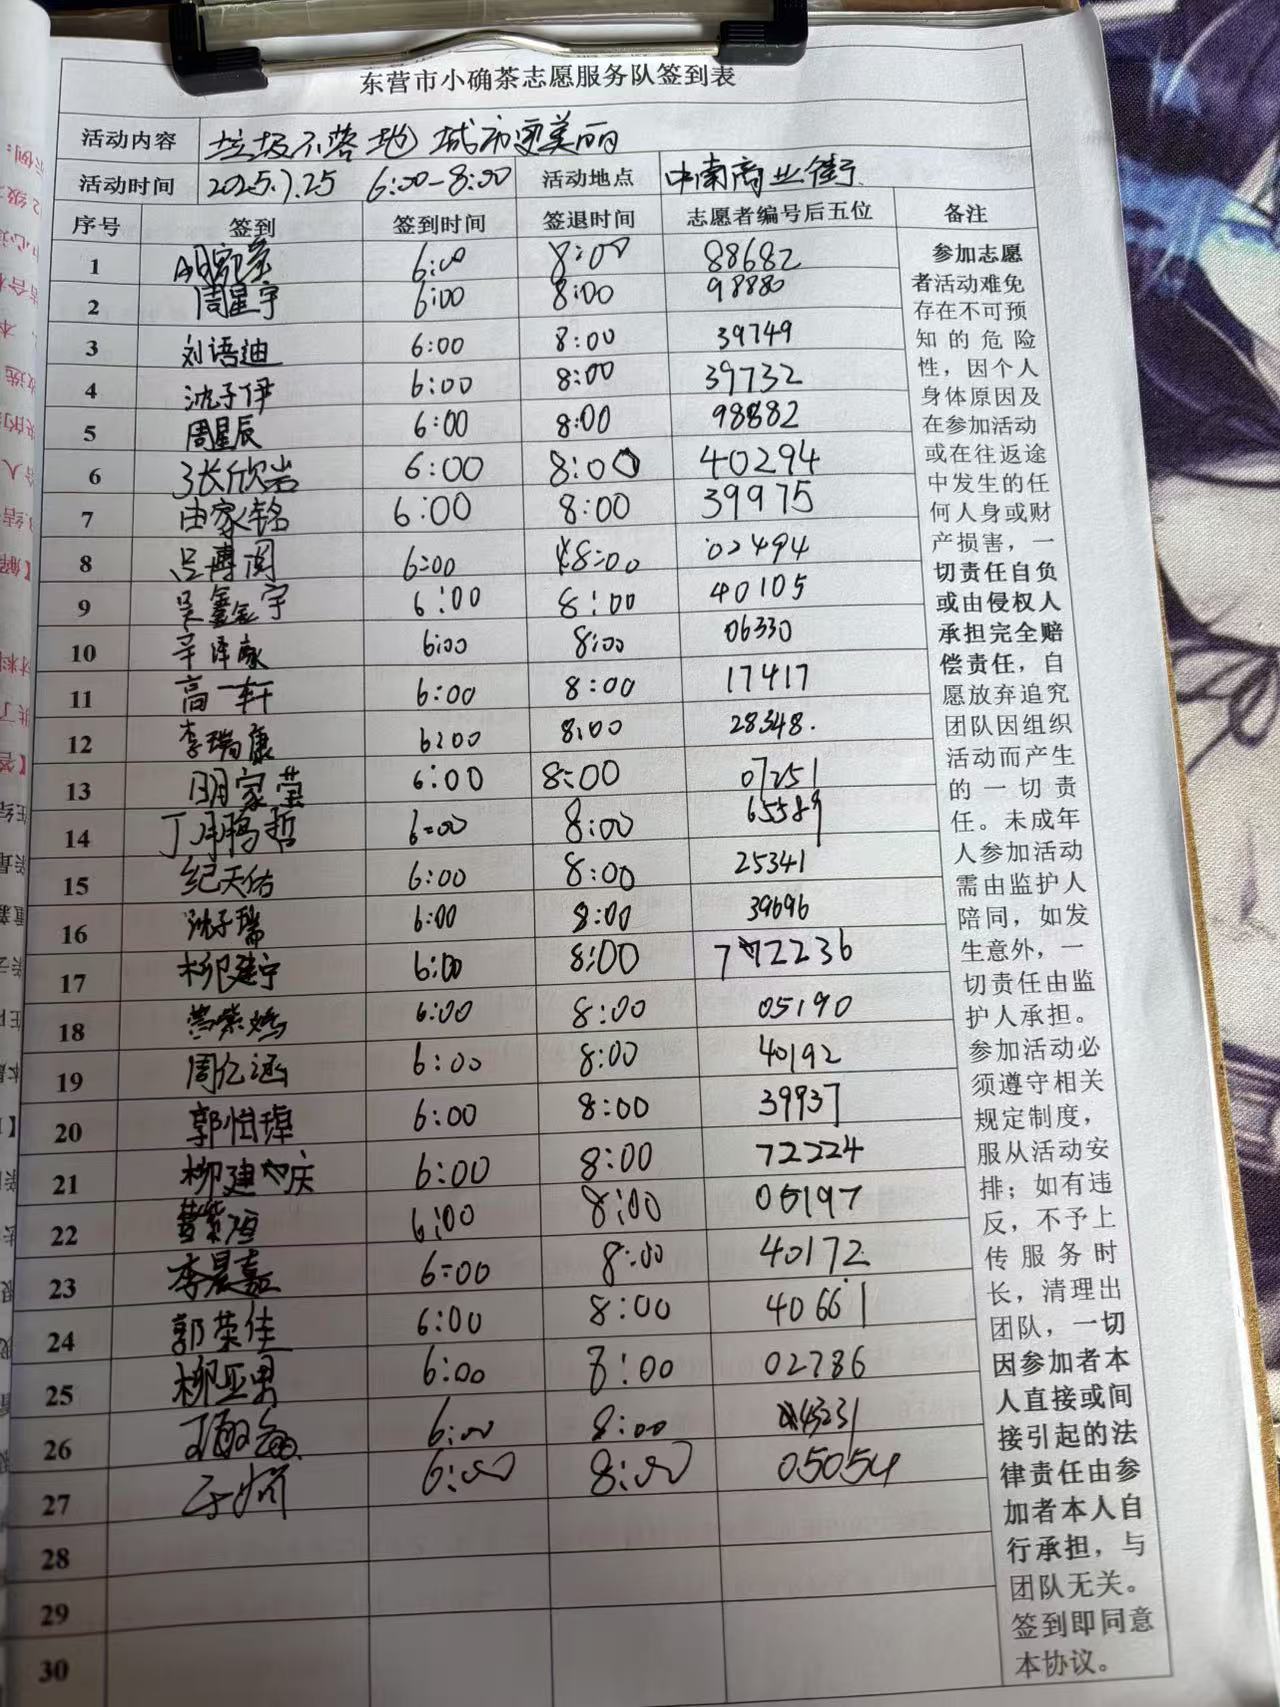 东营市小确茶志愿服务队签到表
活动内容 垃圾不落地 城市更美丽
活动时间 2025.7.25 6:00-8:00 活动地点 中南商业街
序号 签到 签到时间 签退时间 志愿者编号后五位 备注
1 6:00 8:00 88682
2 周星宇 6:00 8:00 98880
3 刘语迪 6:00 8:00 39749
4 沈子伊 6:00 8:00 39732
5 周星辰 6:00 8:00 98882
6 张欣岩 6:00 8:00 40294
7 由家铭 6:00 8:00 39975
8 吕博阅 6:00 8:00 02494
9 吴鑫宇 6:00 8:00 40105
10 辛泽家 6:00 8:00 06330
11 高一轩 6:00 8:00 17417
12 李瑞康 6:00 8:00 28348.
13 明家莹 6:00 8:00 07251
14 丁鹏哲 6:00 8:00 65589
15 纪天佑 6:00 8:00 25341
16 沈子瑞 6:00 8:00 39696
17 柳建宁 6:00 8:00 72236
18 6:00 8:00 05190
19 周亿涵 6:00 8:00 40192
20 郭恒瑋 6:00 8:00 39937
21 柳建庆 6:00 8:00 72224
22 黄紫恒 6:00 8:00 05197
23 李晨嘉 6:00 8:00 40172
24 郭荣佳 6:00 8:00 40661
25 柳亚男 6:00 8:00 02786
26 6:00 8:00 45231
27 6:00 8:00 05054
28
29
30
参加志愿
者活动难免
存在不可预
知的危险
性，因个人
身体原因及
在参加活动
或在往返途
中发生的任
何人身或财
产损害，一
切责任自负
或由侵权人
承担完全赔
偿责任，自
愿放弃追究
团队因组织
活动而产生
的一切责
任。未成年
人参加活动
需由监护人
陪同，如发
生意外，一
切责任由监
护人承担。
参加活动必
须遵守相关
规定制度，
服从活动安
排；如有违
反，不予上
传服务时
长，清理出
团队，一切
因参加者本
人直接或间
接引起的法
律责任由参
加者本人自
行承担，与
团队无关。
签到即同意
本协议。